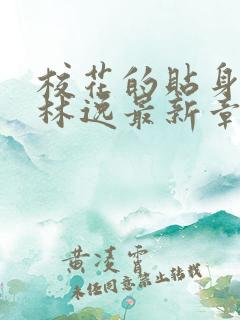 校花的贴身
林逸最新章
黄凌霄
未经同意禁止转载